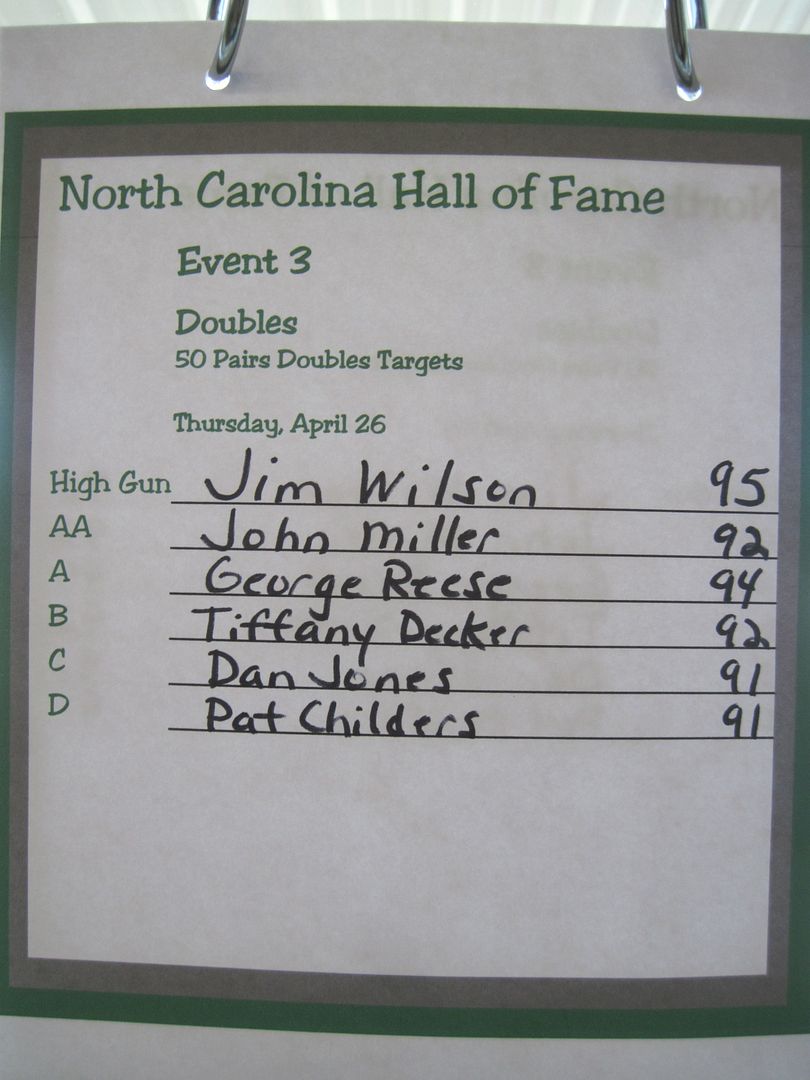 North Carolina Hall of Fame
Event 3
Doubles
50 Pairs Doubles Targets
Thursday, April 26
High Gun Jim Wilson 95
AA John Miller 92
A George Reese 94
B Tiffany Decker 92
C Dan Jones 91
D Pat Childers 91